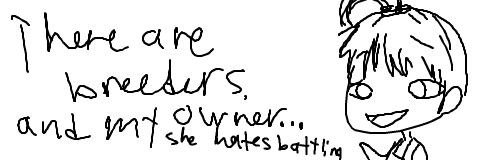 There are
breeders.
and my owner...
she hates battling